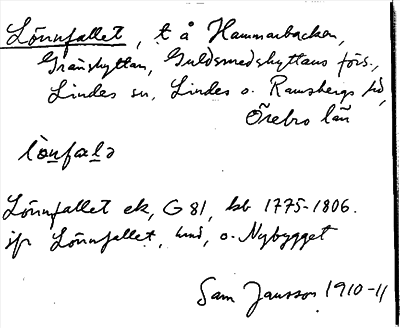 Lönnfallet, t å Hammarbacken,
Gränshyttan, Guldsmedshyttans förs.,
Lindes sn, Lindes o. Ramsbergs hd,
Örebro län
lònfalə
Lönnfallet ek, G 81, hb 1775-1806.
jfr Lönnfallet, und, o. Nybygget
Sam Jansson 1910-11